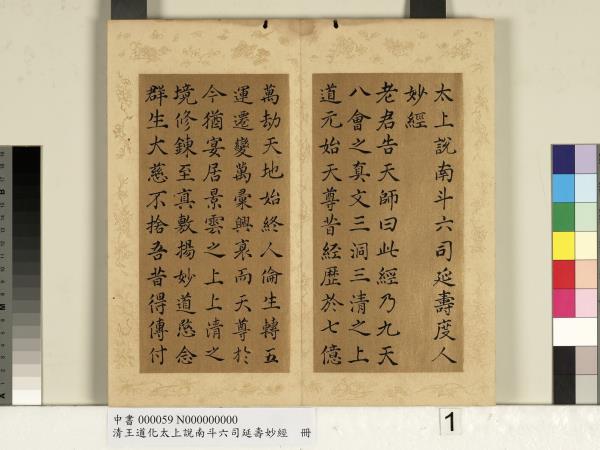 太上說南斗六司延壽度人
妙經
老君告天師曰此經乃九天
八會之真文三洞三清之上
道元始天尊昔經歷於七億
萬劫天地始終人倫生轉五
運遷變萬彙興衰而天尊於
今猶宴居景雲之上上清之
境修鍊至真敷揚妙道愍念
群生大慈不捨吾昔得傳付
中書 000059 N000000000
清王道化太上說南斗六司延壽妙經 冊
1